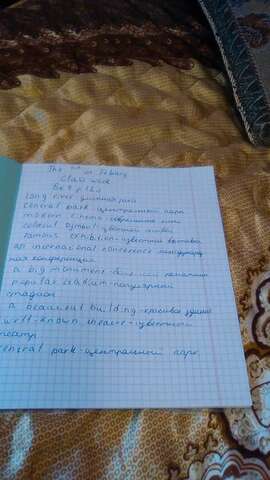 The of Febary
Class work
Ex 9 p 121
long river-длинная рий
central park-центральный парк
modern cinema-современное кино
colour symbol-цветной символ
famous exhibition-известная выставка
an internacional conference-междунаро
дная конференция
a big monument-большой памятник
popular stadium-популярный
стадион
a beautiful building-красивое здание
well-known theatre-известный
театр
central park-центральный парк